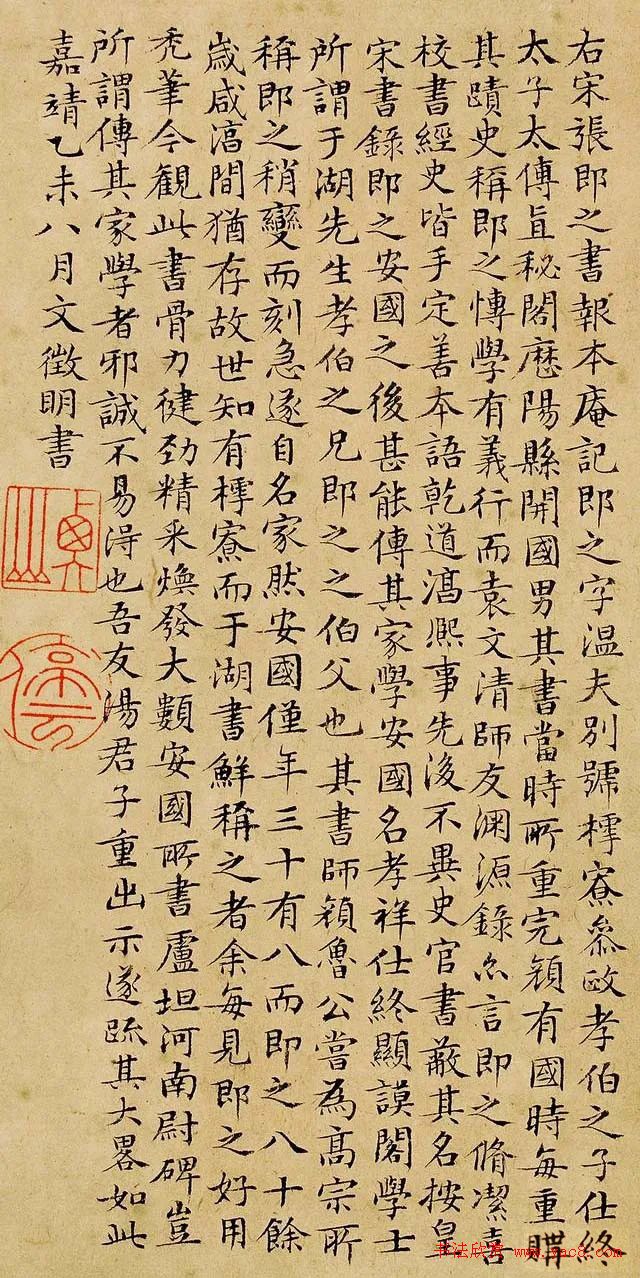 右宋張即之書報本庵記即之字温夫別號樗寮叅政孝伯之子仕終
太子太傅直秘閣歷陽縣開國男其書當時所重完顏有國時每重購
其蹟史稱即之博學有義行而袁文清師友渊源錄亦言即之脩潔喜
校書經史皆手定善本語乾道淳熙事先後不異史官書蔽其名按皇
宋書錄即之安國之後甚能傳其家學安國名孝祥仕終顯謨閣學士
所謂于湖先生孝伯之兄即之之伯父也其書師顏魯公嘗為髙宗所
稱即之稍變而刻急遂自名家然安國僅年三十有八而即之八十餘
歲咸淳間猶存故世知有樗寮而于湖書鮮稱之者余每見即之好用
秃筆今觀此書骨力健勁精采煥發大類安國所書盧坦河南尉碑豈
所謂傳其家學者邪誠不易得也吾友湯君子重出示遂疏其大畧如此
嘉靖乙未八月文徵明書
停雲
书法欣赏 www.yac8.com